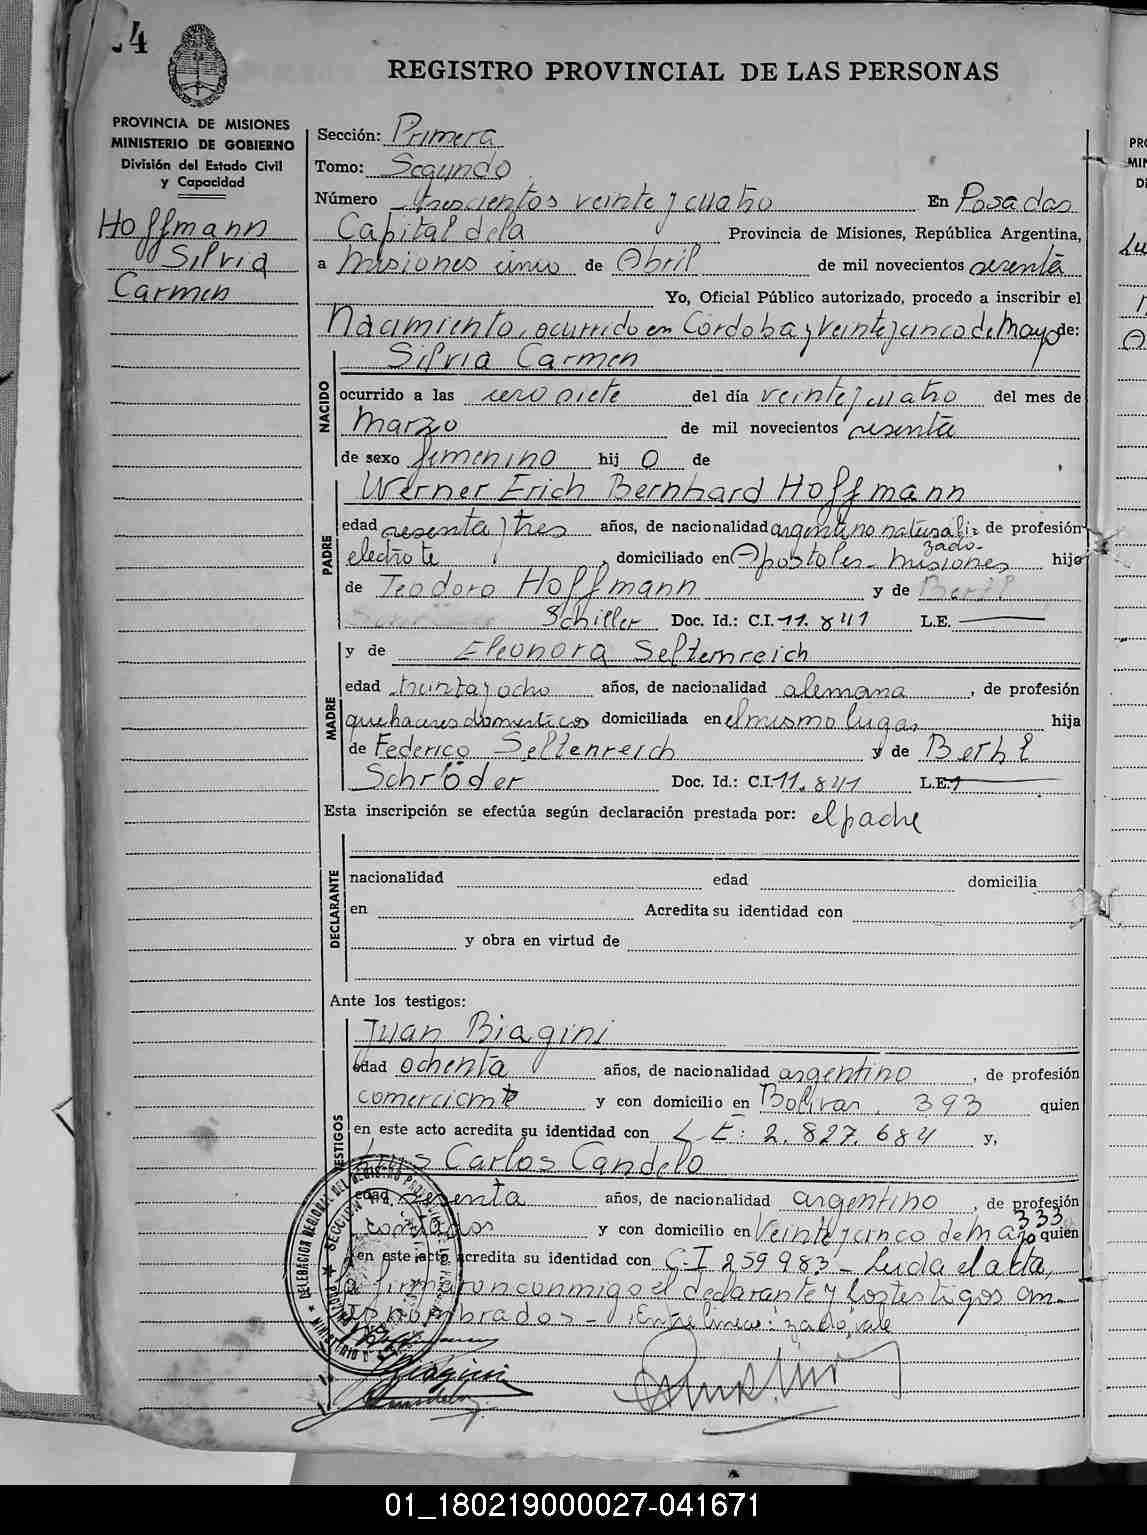 24
REGISTRO PROVINCIAL DE LAS PERSONAS
PROVINCIA DE MISIONES
MINISTERIO DE GOBIERNO
División del Estado Civil
y Capacidad
Hoffmann
Silvia
Carmen
Sección: Primera
Tomo: Segundo
Número trescientos veinte y cuatro En Posadas
Capital de la Provincia de Misiones, República Argentina,
a Misiones cinco de Abril de mil novecientos sesenta
Yo, Oficial Público autorizado, procedo a inscribir el
Nacimiento, ocurrido en Córdoba y veinte y cinco de Mayo de:
Silvia Carmen
NACIDO
ocurrido a las cero siete del día veinte y cuatro del mes de
Marzo de mil novecientos sesenta
de sexo femenino hij o de
PADRE
Werner Erich Bernhard Hoffmann
edad sesenta y tres años, de nacionalidad argentino naturali= de profesión
zado-
electrote domiciliado en Apostoles - Misiones hijo
de Teodoro Hoffmann y de
Schiller Doc. Id.: C.I. 11.841 L.E.
MADRE
y de Eleonora Seltenreich
edad treinta y ocho años, de nacionalidad alemana, de profesión
quehaceres domesticos domiciliada en el mismo lugar hija
de Federico Seltenreich y de
Schröder Doc. Id.: C.I. 11.841 L.E.
Esta inscripción se efectúa según declaración prestada por: el padre
DECLARANTE
nacionalidad edad domicilia
en Acredita su identidad con
y obra en virtud de
Ante los testigos:
TESTIGOS
Juan Biagini
edad ochenta años, de nacionalidad argentino, de profesión
comerciante y con domicilio en Bolivar. 393 quien
en este acto acredita su identidad con L E: 2.827.684 y,
Luis Carlos Candelo
edad sesenta años, de nacionalidad argentino, de profesión
333
contador y con domicilio en Veinte y cinco de Mayo quien
en este acto acredita su identidad con C.I 259983 - Leida el acta,
la firmaron conmigo el declarante y los testigos an-
tes nombrados - Entre líneas: zado, vale
01_180219000027-041671